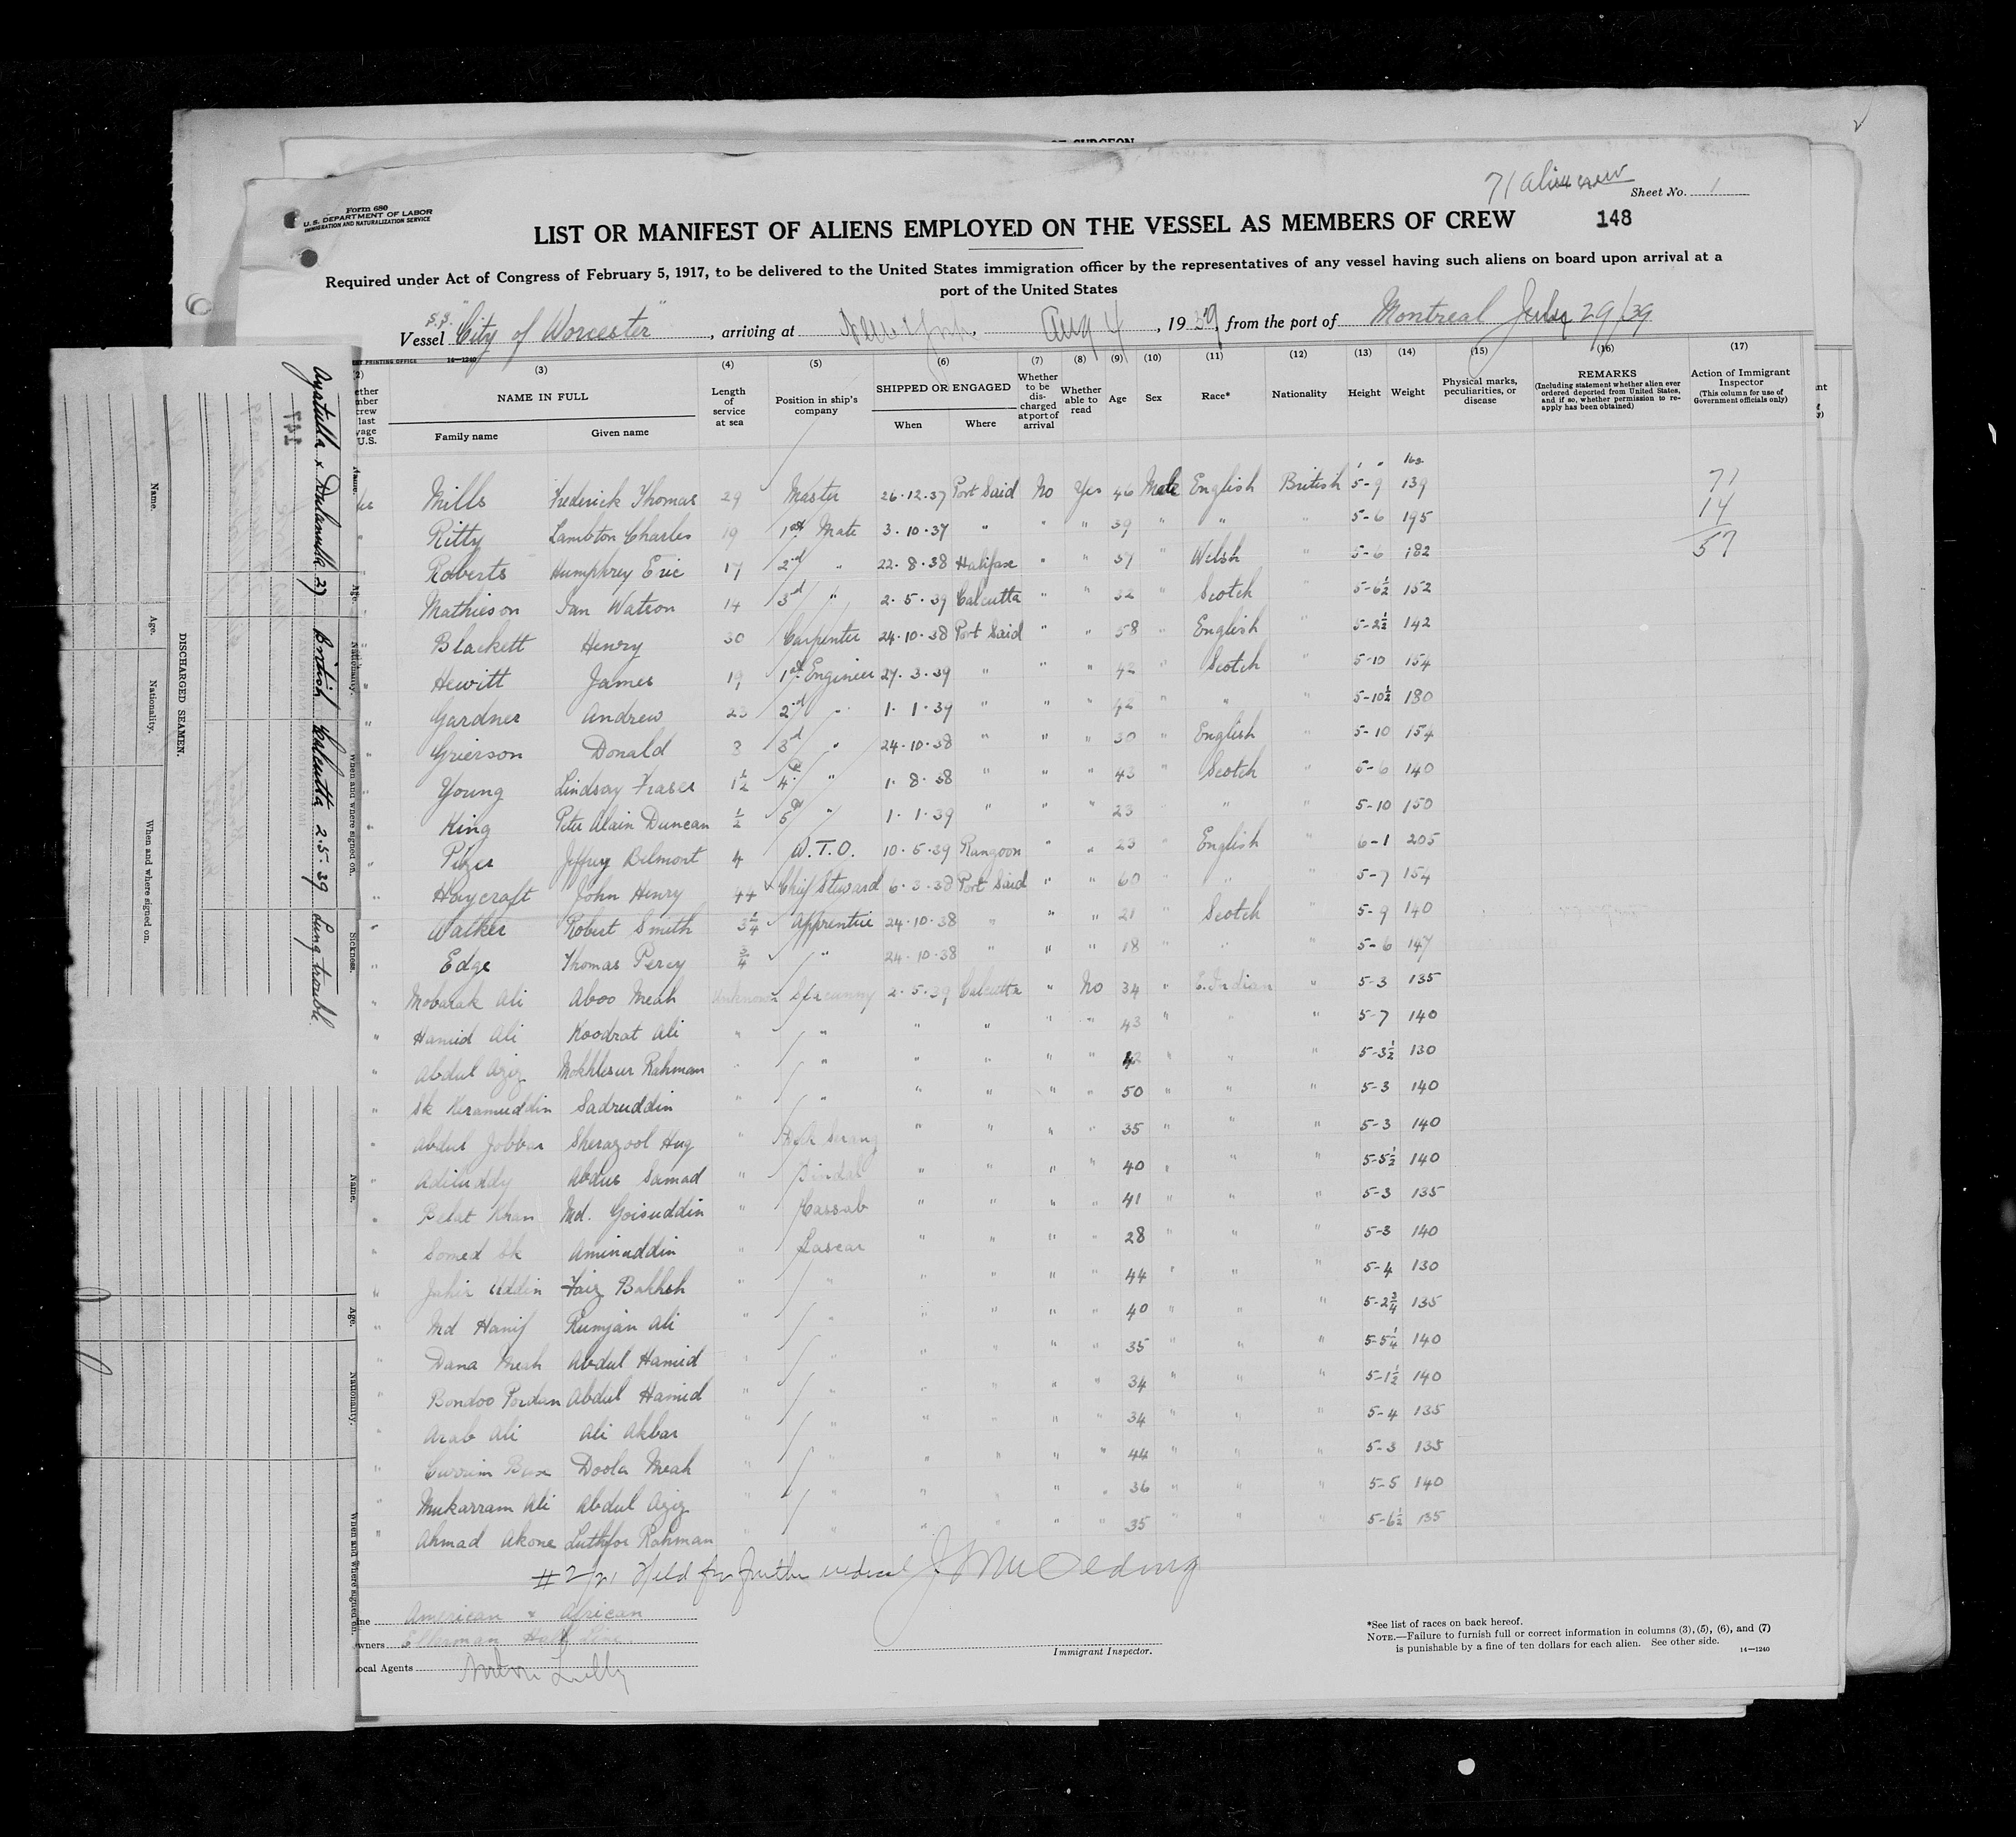 OF SURGEON
71 alien crew
Sheet No. 1
Form 680
U. S. DEPARTMENT OF LABOR
IMMIGRATION AND NATURALIZATION SERVICE
LIST OR MANIFEST OF ALIENS EMPLOYED ON THE VESSEL AS MEMBERS OF CREW
148
Required under Act of Congress of February 5, 1917, to be delivered to the United States immigration officer by the representatives of any vessel having such aliens on board upon arrival at a
port of the United States
Vessel S.S. "City of Worcester", arriving at New York, Aug 4, 1939, from the port of Montreal July 29/39
14—1240
(3) (4) (5) (6) (7) (8) (9) (10) (11) (12) (13) (14) (15) (16) (17)
NAME IN FULL
Family name Given name
Length of service at sea
Position in ship's company
SHIPPED OR ENGAGED
When Where
Whether to be discharged at port of arrival
Whether able to read
Age
Sex
Race*
Nationality
Height
Weight
Physical marks, peculiarities, or disease
REMARKS
(Including statement whether alien ever ordered deported from United States, and if so, whether permission to reapply has been obtained)
Action of Immigrant Inspector
(This column for use of Government officials only)
Mills Frederick Thomas 29 Master 26.12.37 Port Said No Yes 46 Male English British 5-9 139 71
Ritty Lambton Charles 19 1st Mate 3.10.37 " " " 39 " " " 5-6 195 14
Roberts Humphrey Eric 17 2nd " 22.8.38 Halifax " " " Welsh " 5-6 182 57
Mathieson Ian Watson 14 3rd " 2.5.39 Calcutta " " 32 " Scotch " 5-6½ 152
Blackett Henry 30 Carpenter 24.10.38 Port Said " " 58 " English " 5-2½ 142
Hewitt James 19 1st Engineer 27.3.39 " " " 42 " Scotch " 5-10 154
Gardner Andrew 23 2nd " 1.1.39 " " " 42 " " " 5-10½ 180
Grierson Donald 3 3rd " 24.10.38 " " " 30 " English " 5-10 154
Young Lindsay Fraser 1½ 4th " 1.8.38 " " " 43 " Scotch " 5-6 140
King Peter Alain Duncan ½ 5th " 1.1.39 " " " 23 " " " 5-10 150
Pizer Jeffrey Belmont 4 W.T.O. 10.5.39 Rangoon " " 23 " English " 6-1 205
Haycraft John Henry 44 Chief Steward 6.3.38 Port Said " " 60 " " " 5-7 154
Walker Robert Smith 3¼ Apprentice 24.10.38 " " " 21 " Scotch " 5-9 140
Edge Thomas Percy ¾ " 24.10.38 " " " 18 " " " 5-6 147
Mobarak Ali Aboo Meah Unknown Seacunny 2.5.39 Calcutta " No 34 " E. Indian " 5-3 135
Hamid Ali Koodrat Ali " " " " " " 43 " " " 5-7 140
Abdul Aziz Mokhlesur Rahman " " " " " " 42 " " " 5-3½ 130
Sk Keramuddin Sadruddin " " " " " " 50 " " " 5-3 140
Abdul Jobbar Sherazool Huq " Deck Serang " " " " 35 " " " 5-3 140
Adiluddy Abdus Samad " Tindal " " " " 40 " " " 5-5½ 140
Belat Khan Md. Goisuddin " Cassab " " " " 41 " " " 5-3 135
Somed Sk Aminuddin " Lascar " " " " 28 " " " 5-3 140
Jahir Uddin Faiz Bakhsh " " " " " " 44 " " " 5-4 130
Md Hanif Rumjan Ali " " " " " " 40 " " " 5-2¾ 135
Dana Meah Abdul Hamid " " " " " " 35 " " " 5-5¼ 140
Bondoo Pordan Abdul Hamid " " " " " " 34 " " " 5-1½ 140
Arab Ali Ali Akbar " " " " " " 34 " " " 5-4 135
Currim Bux Doola Meah " " " " " " 44 " " " 5-3 135
Mukarram Ali Abdul Aziz " " " " " " 36 " " " 5-5 140
Ahmad Akone Luthfor Rahman " " " " " " 35 " " " 5-6½ 135
Held for further medical
American & African
Owners Ellerman Hall Line
Local Agents Norton Lilly
Immigrant Inspector.
*See list of races on back hereof.
NOTE.—Failure to furnish full or correct information in columns (3), (5), (6), and (7)
is punishable by a fine of ten dollars for each alien. See other side.
14—1240
DISCHARGED SEAMEN.
Name. Age. Nationality. When and where signed on.
Name. Age. Nationality. When and where signed on. Sickness.
Ayatulla x Dulamulla 27 British Calcutta 2.5.39 Lung trouble.
Name. Age. Nationality. When and where signed on.